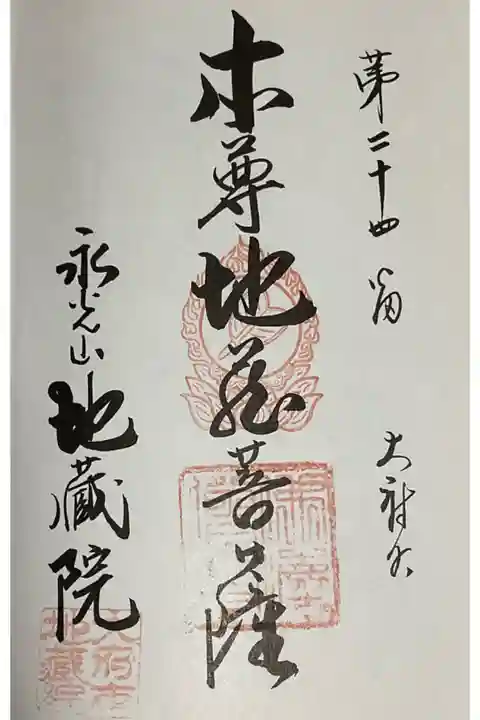 第二十四番
本尊地蔵菩薩
永光山地蔵院
大府市
地蔵院